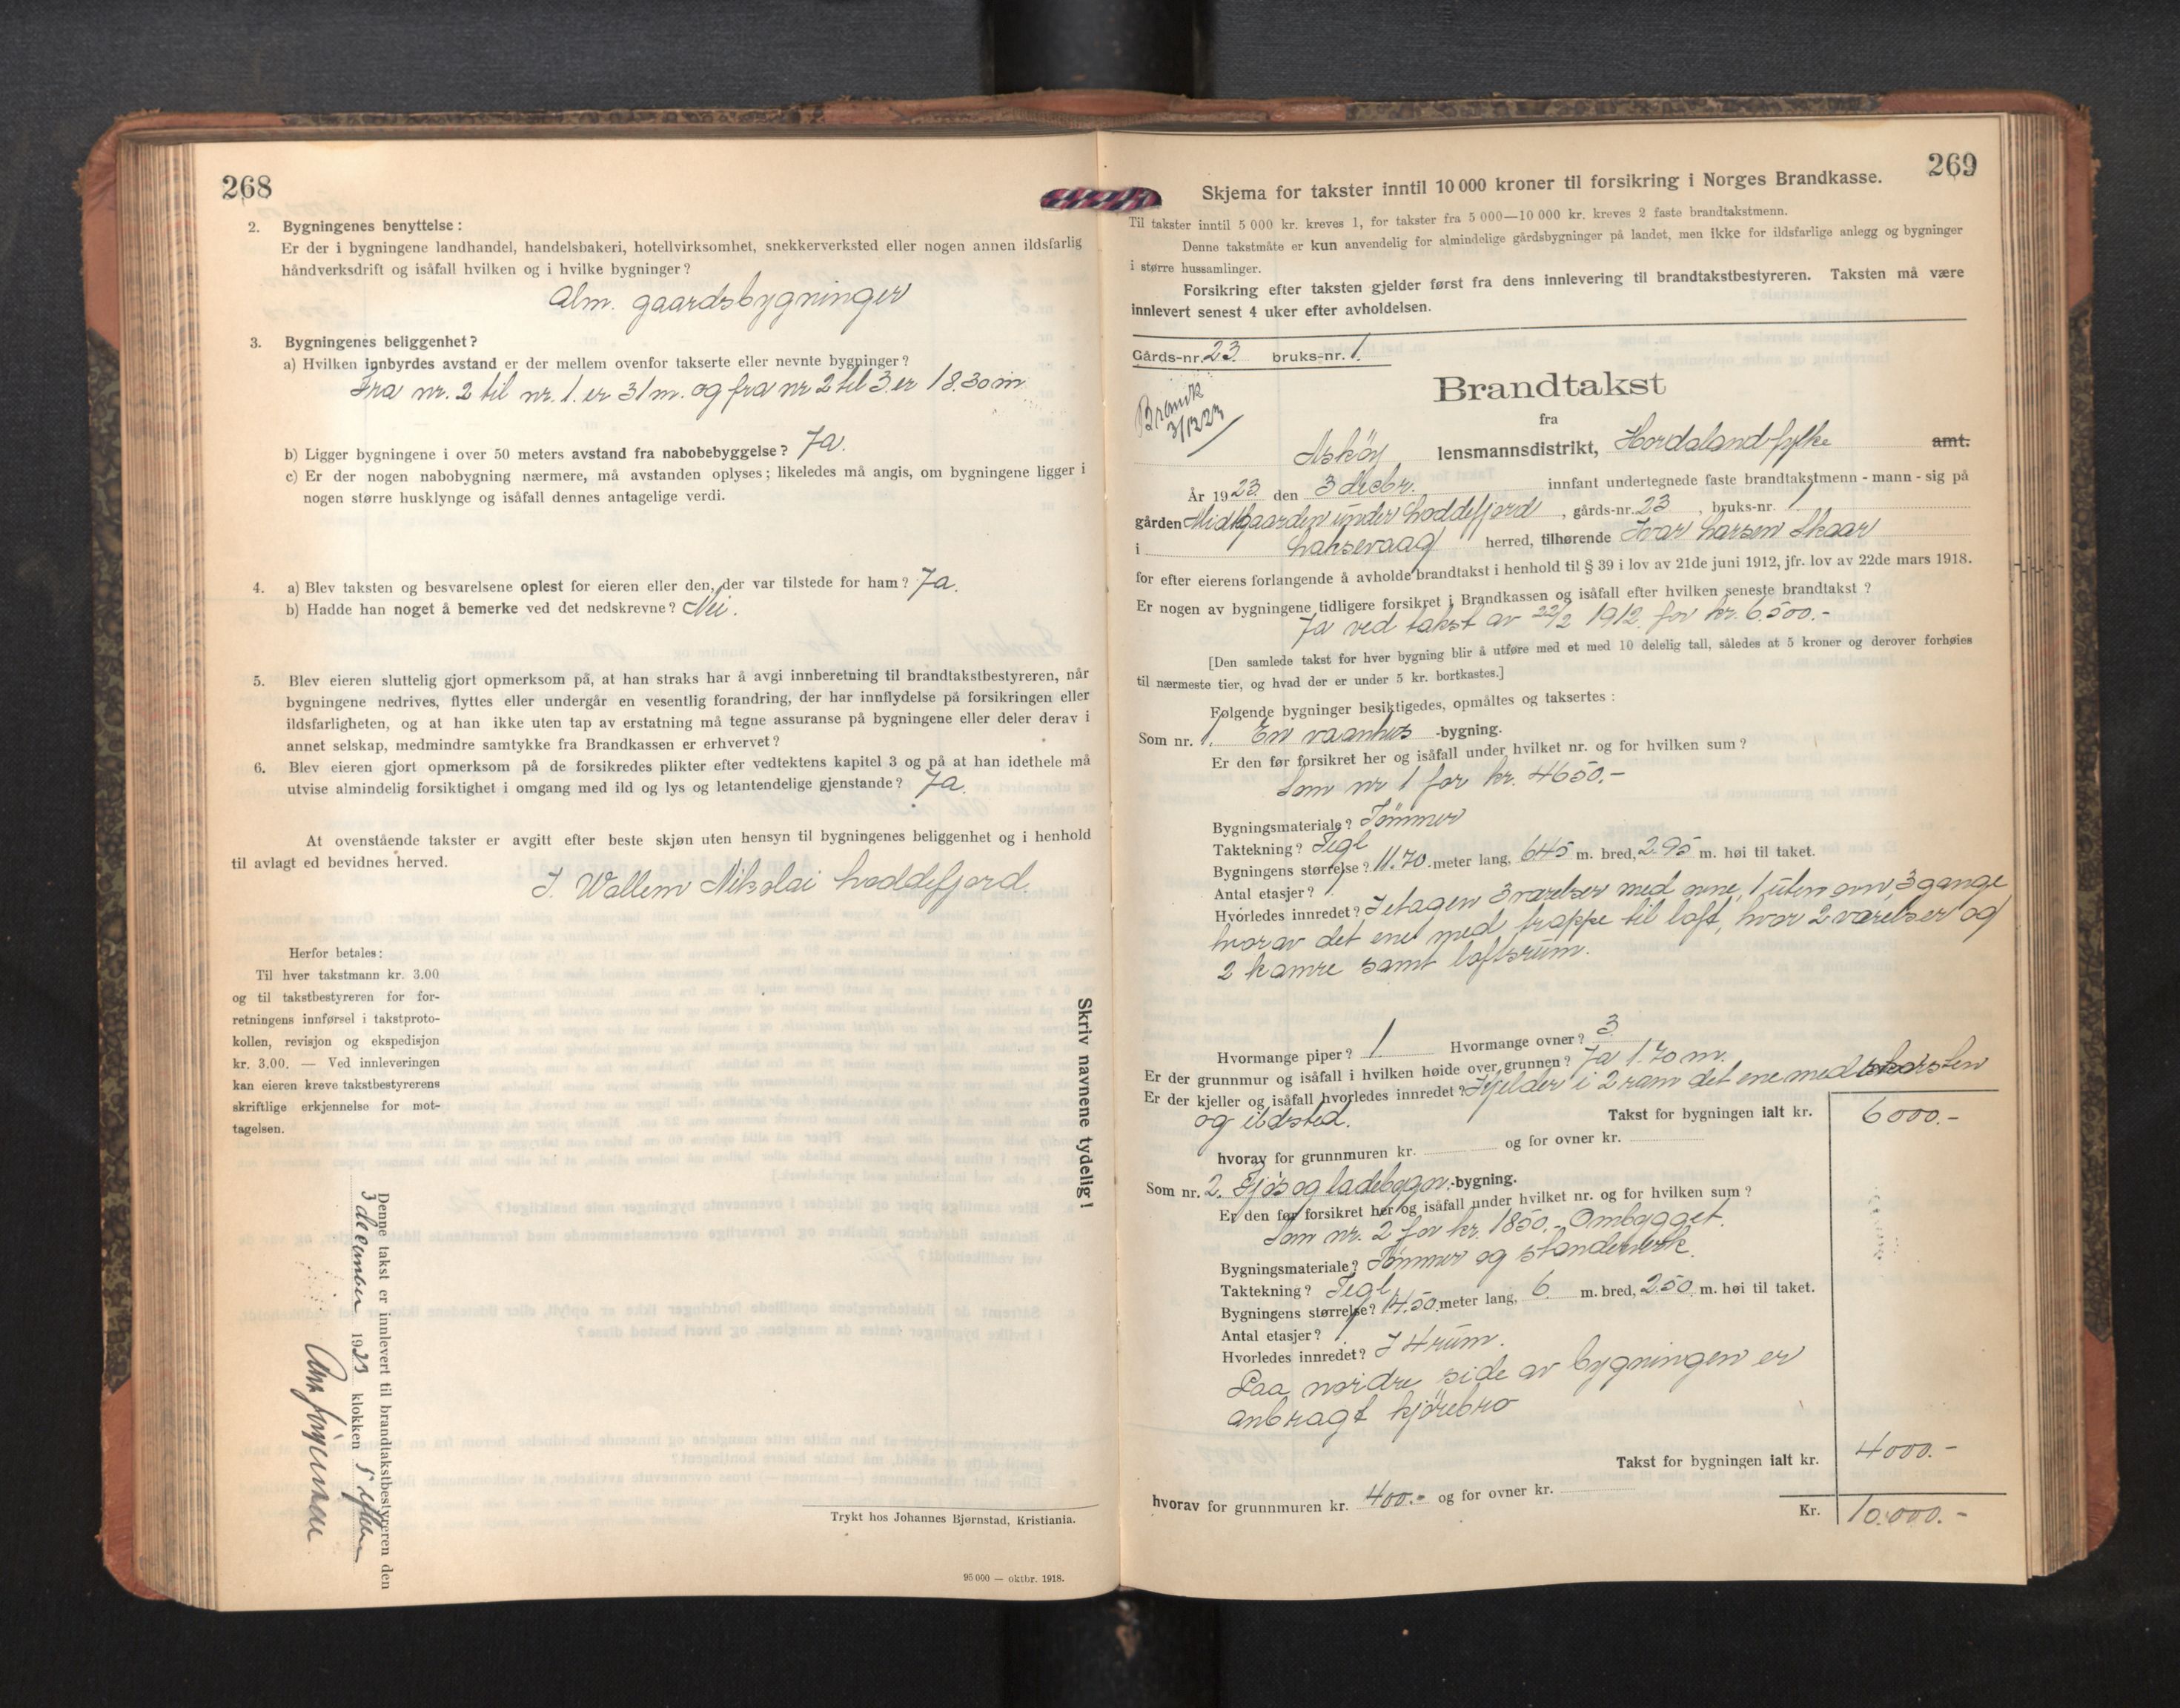 268
2. Bygningenes benyttelse:
Er der i bygningene landhandel, handelsbakeri, hotellvirksomhet, snekkerverksted eller nogen annen ildsfarlig
håndverksdrift og isåfall hvilken og i hvilke bygninger?
Alm. gaardsbygninger
3. Bygningenes beliggenhet?
a) Hvilken innbyrdes avstand er der mellem ovenfor takserte eller nevnte bygninger?
Fra nr. 2 til nr. 1. er 31 m. og fra nr 2 til 3. er 18.30 m
b) Ligger bygningene i over 50 meters avstand fra nabobebyggelse? Ja.
c) Er der nogen nabobygning nærmere, må avstanden oplyses; likeledes må angis, om bygningene ligger i
nogen større husklynge og isåfall dennes antagelige verdi.
4. a) Blev taksten og besvarelsene oplest for eieren eller den, der var tilstede for ham? Ja.
b) Hadde han noget å bemerke ved det nedskrevne? Nei.
5. Blev eieren sluttelig gjort opmerksom på, at han straks har å avgi innberetning til brandtakstbestyreren, når
bygningene nedrives, flyttes eller undergår en vesentlig forandring, der har innflydelse på forsikringen eller
ildsfarligheten, og at han ikke uten tap av erstatning må tegne assuranse på bygningene eller deler derav i
annet selskap, medmindre samtykke fra Brandkassen er erhvervet?
6. Blev eieren gjort opmerksom på de forsikredes plikter efter vedtektens kapitel 3 og på at han idethele må
utvise almindelig forsiktighet i omgang med ild og lys og letantendelige gjenstande? Ja.
At ovenstående takster er avgitt efter beste skjøn uten hensyn til bygningenes beliggenhet og i henhold
til avlagt ed bevidnes herved.
J. Wallem Nikolai Loddefjord.
Herfor betales:
Til hver takstmann kr. 3.00
og til takstbestyreren for for-
retningens innførsel i takstproto-
kollen, revisjon og ekspedisjon
kr. 3.00. — Ved innleveringen
kan eieren kreve takstbestyrerens
skriftlige erkjennelse for mot-
tagelsen.
Skriv navnene tydelig!
Denne takst er innlevert til brandtakstbestyreren den
3 december 1923 klokken 5 efterm
Trykt hos Johannes Bjørnstad, Kristiania.
95 000 — oktbr. 1918.
269
Skjema for takster inntil 10 000 kroner til forsikring i Norges Brandkasse.
Til takster inntil 5 000 kr. kreves 1, for takster fra 5 000—10 000 kr. kreves 2 faste brandtakstmenn.
Denne takstmåte er kun anvendelig for almindelige gårdsbygninger på landet, men ikke for ildsfarlige anlegg og bygninger
i større hussamlinger.
Forsikring efter taksten gjelder først fra dens innlevering til brandtakstbestyreren. Taksten må være
innlevert senest 4 uker efter avholdelsen.
Gårds-nr. 23. bruks-nr. 1.
Brandtakst
fra
3/12 23
Askøy lensmannsdistrikt, Hordaland fylke amt.
År 1923 den 3 decbr. innfant undertegnede faste brandtakstmenn - mann - sig på
gården Midtgaarden under Loddefjord, gårds-nr. 23, bruks-nr. 1
i Laksevaag herred, tilhørende Ivar Larsen Skaar
for efter eierens forlangende å avholde brandtakst i henhold til § 39 i lov av 21de juni 1912, jfr. lov av 22de mars 1918.
Er nogen av bygningene tidligere forsikret i Brandkassen og isåfall efter hvilken seneste brandtakst?
Ja ved takst av 22/2 1912 for kr. 6.500.-
[Den samlede takst for hver bygning blir å utføre med et med 10 delelig tall, således at 5 kroner og derover forhøies
til nærmeste tier, og hvad der er under 5 kr. bortkastes.]
Følgende bygninger besiktigedes, opmåltes og taksertes:
Som nr. 1. En vaanhus -bygning.
Er den før forsikret her og isåfall under hvilket nr. og for hvilken sum?
Som nr 1 for kr. 4650.-
Bygningsmateriale? Tømmer
Taktekning? Tegl
Bygningens størrelse? 11.70 meter lang, 645 m. bred, 2.95 m. høi til taket.
Antal etasjer? 1
Hvorledes innredet? I etagen 3 værelser med ovne, 1 uten ovn, 3 gange
hvorav det ene med trappe til loft, hvor 2 værelser og
2 kamre samt loftsrum.
Hvormange piper? 1. Hvormange ovner? 3
Er der grunnmur og isåfall i hvilken høide over grunnen? Ja 1.70 m.
Er der kjeller og isåfall hvorledes innredet? Kjelder i 2 rum det ene med skorsten
og ildsted.
Takst for bygningen ialt kr. 6000.-
hvorav for grunnmuren kr. og for ovner kr.
Som nr. 2. Fjøs og ladebygn. -bygning.
Er den før forsikret her og isåfall under hvilket nr. og for hvilken sum?
Som nr. 2 for kr. 1850.- Ombygget.
Bygningsmateriale? Tømmer og standerverk.
Taktekning? Tegl
Bygningens størrelse? 14.50 meter lang, 6 m. bred, 2.50 m. høi til taket.
Antal etasjer? 1
Hvorledes innredet? I 4 rum.
Paa nordre side av bygningen er
anbragt kjørebro
Takst for bygningen ialt kr. 4000.-
hvorav for grunnmuren kr. 400.- og for ovner kr.
Kr. 10.000.-